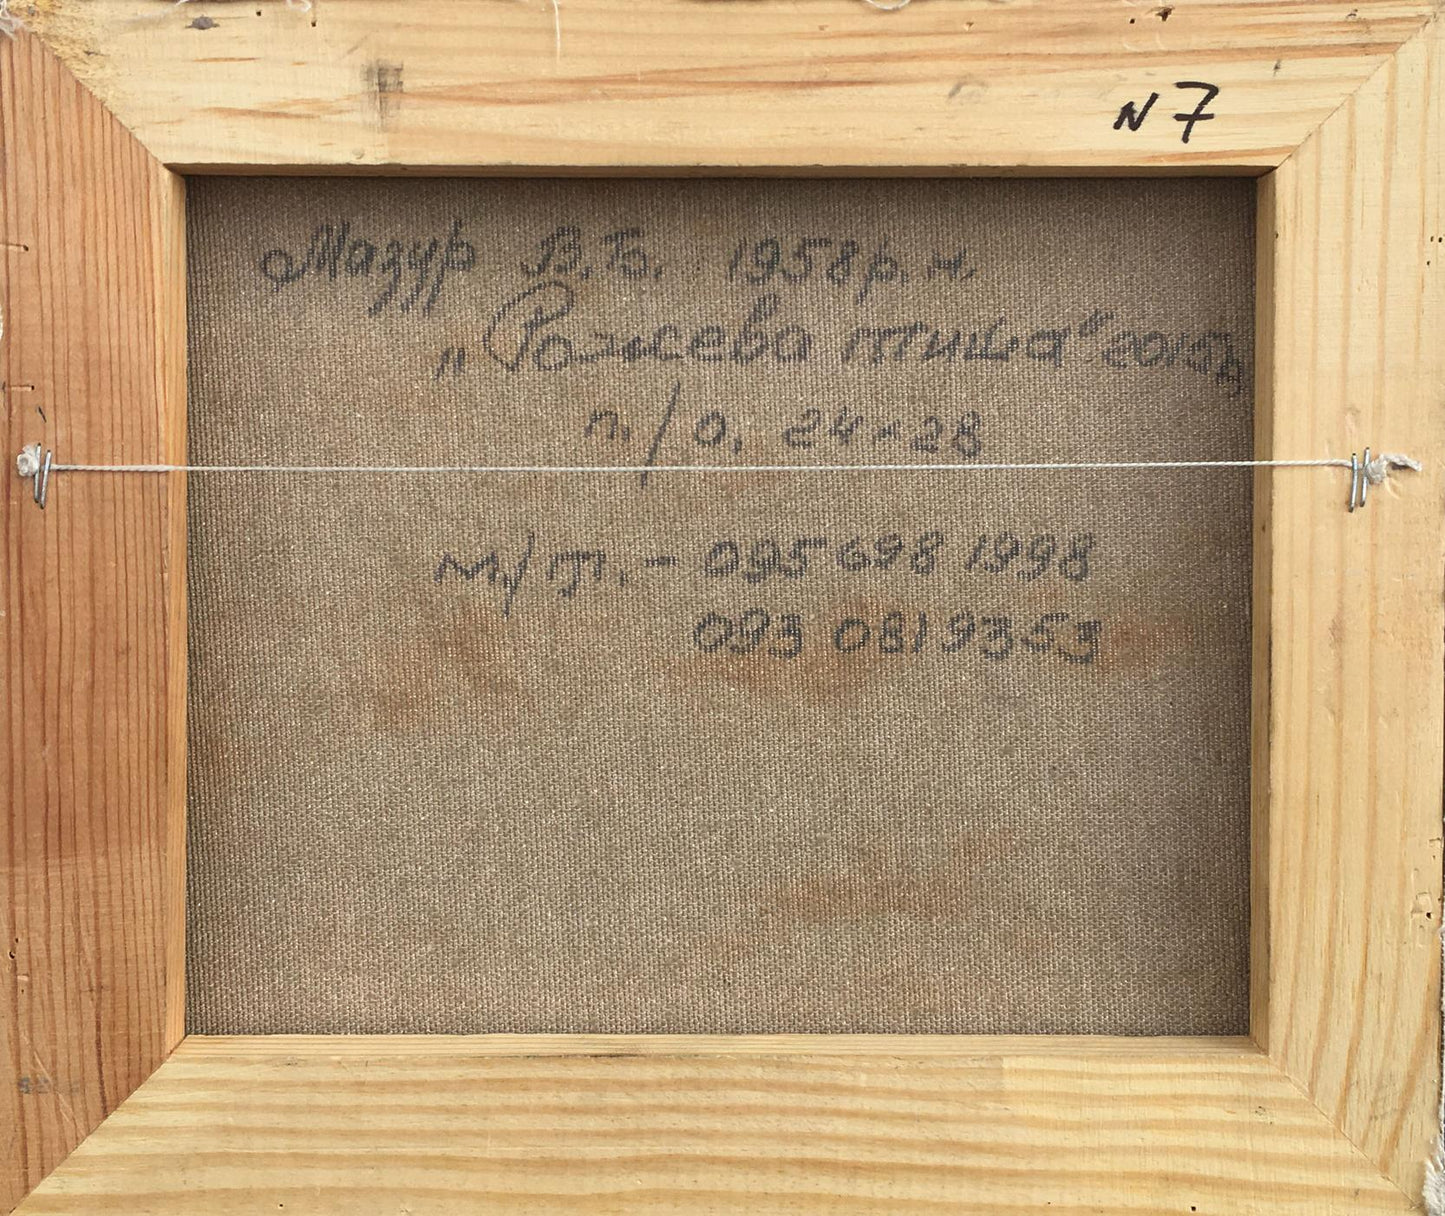 N 7
Мазур В.Б. 1958 р.н.
„Рожева тиша" 2015р
п./о. 24×28
м/т. - 095 698 1998
093 0819353